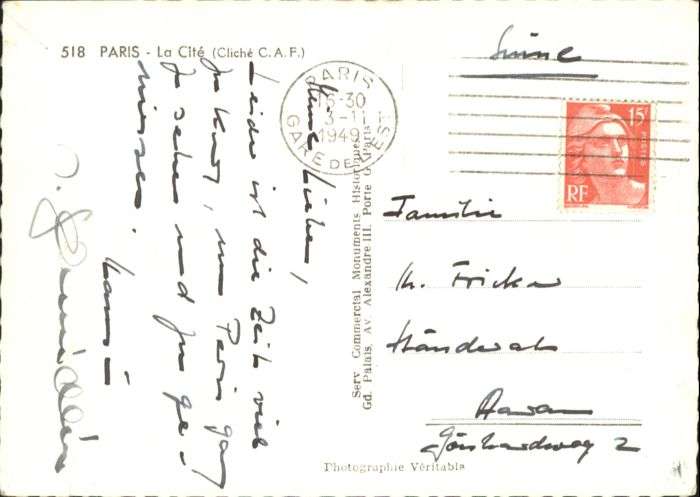 518 PARIS - La Cité (Cliché C.A.F.)
Meine Lieben,
Leider ist die Zeit viel
zu kurz, um Paris ganz
zu sehen und zu ge-
niessen.
PARIS
15-30
3-11
1949
GARE DE L'EST
15F
RF
Suisse
Familie
H. Fricker
Aarau
2
Serv. Commercial Monuments Historiques
Gd. Palais. Av. Alexandre III. Porte G Paris
Photographie Véritable